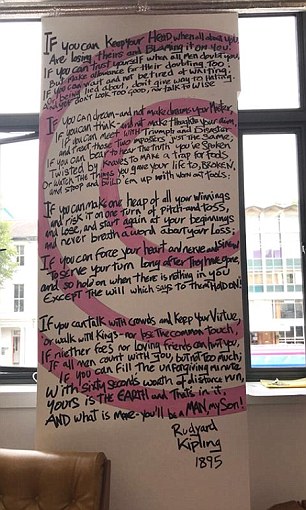 IF you can keep your HEAD when all about you
Are losing theirs and Blaming it on you.
If you can trust yourself when all men doubt you,
But make allowance for their doubting Too
If you can wait and not be tired of waiting,
Or being lied about, don't give way to lies
don't look too good, nor talk to wise
If you can dream - and not make dreams your Master,
If you can think and not make thoughts your aim,
If you can meet with Triumph and Disaster
And treat those two imposters just the same
If you can bear to hear The Truth you've spoken
Twisted by knaves TO MAKE a TRAP for fools
Or watch The Things you gave your life to, BROKEN,
and stoop and build em up with worn out Tools:
If you can make one heap of all your winnings
and risk it on one Turn of Pitch-and-Toss,
and lose, and start again at your beginnings
and never breath a word about your loss;
If you can force your heart and nerve and Sinew
To serve your turn long after They have gone,
and so hold on when there is nothing in you
EXCEPT THE Will which says to them HOLD ON!
If you can talk with crowds and keep your Virtue,
or walk with Kings - nor lose the common Touch,
If niether foes nor loving friends can hurt you,
If all men count with you but nd Too much;
If you can Fill The unforgiving minute
With sixty seconds worth of distance run,
YOURS is The EARTH and Thats in it,
AND what is More - you'll be a MAN, my Son!
Rudyard
Kipling
1895